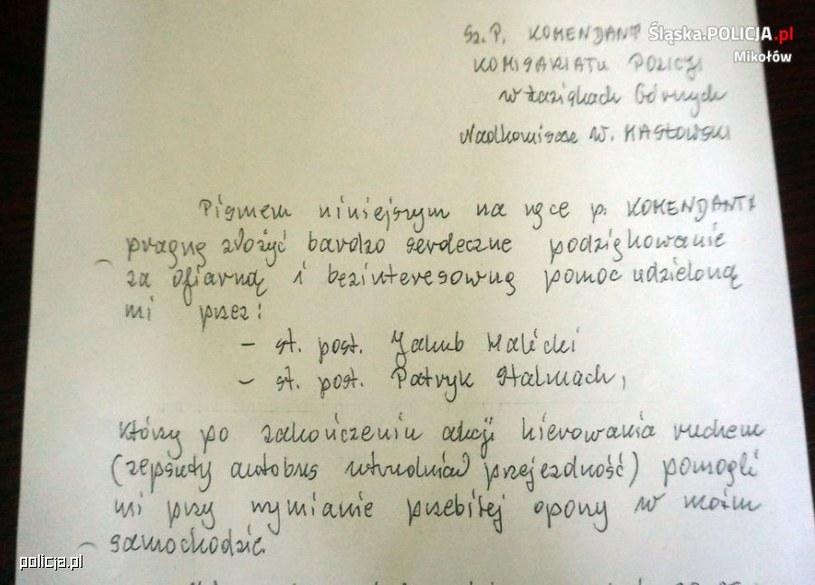 Śląska.POLICJA.pl
Mikołów
Sz. P. KOMENDANT
KOMISARIATU POLICJI
w Łaziskach Górnych
Nadkomisarz W. MASŁOWSKI
Pismem niniejszym na ręce p. KOMENDANTA
pragnę złożyć bardzo serdeczne podziękowanie
za ofiarną i bezinteresowną pomoc udzieloną
mi przez:
- st. post. Jakub Malicki
- st. post. Patryk Stalmach,
którzy po zakończeniu akcji kierowania ruchem
(zepsuty autobus utrudniał przejezdność) pomogli
mi przy wymianie przebitej opony w moim
samochodzie.
policja.pl